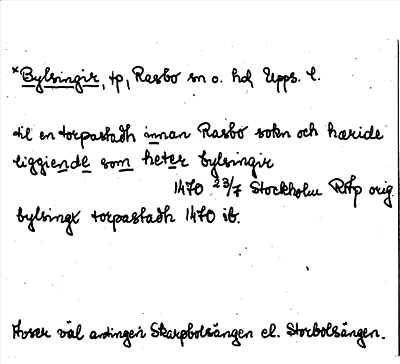 *Bylsingir, tp, Rasbo sn o. hd, Upps. l.
til en torpastadh innan Rasbo sokn och hæride
liggiende som heter bylsingir
1470 23/7 Stockholm RAp orig.
bylsingx torpastadh 1470 ib.
Avser väl antingen Skarpbolsängen el. Storbolsängen.